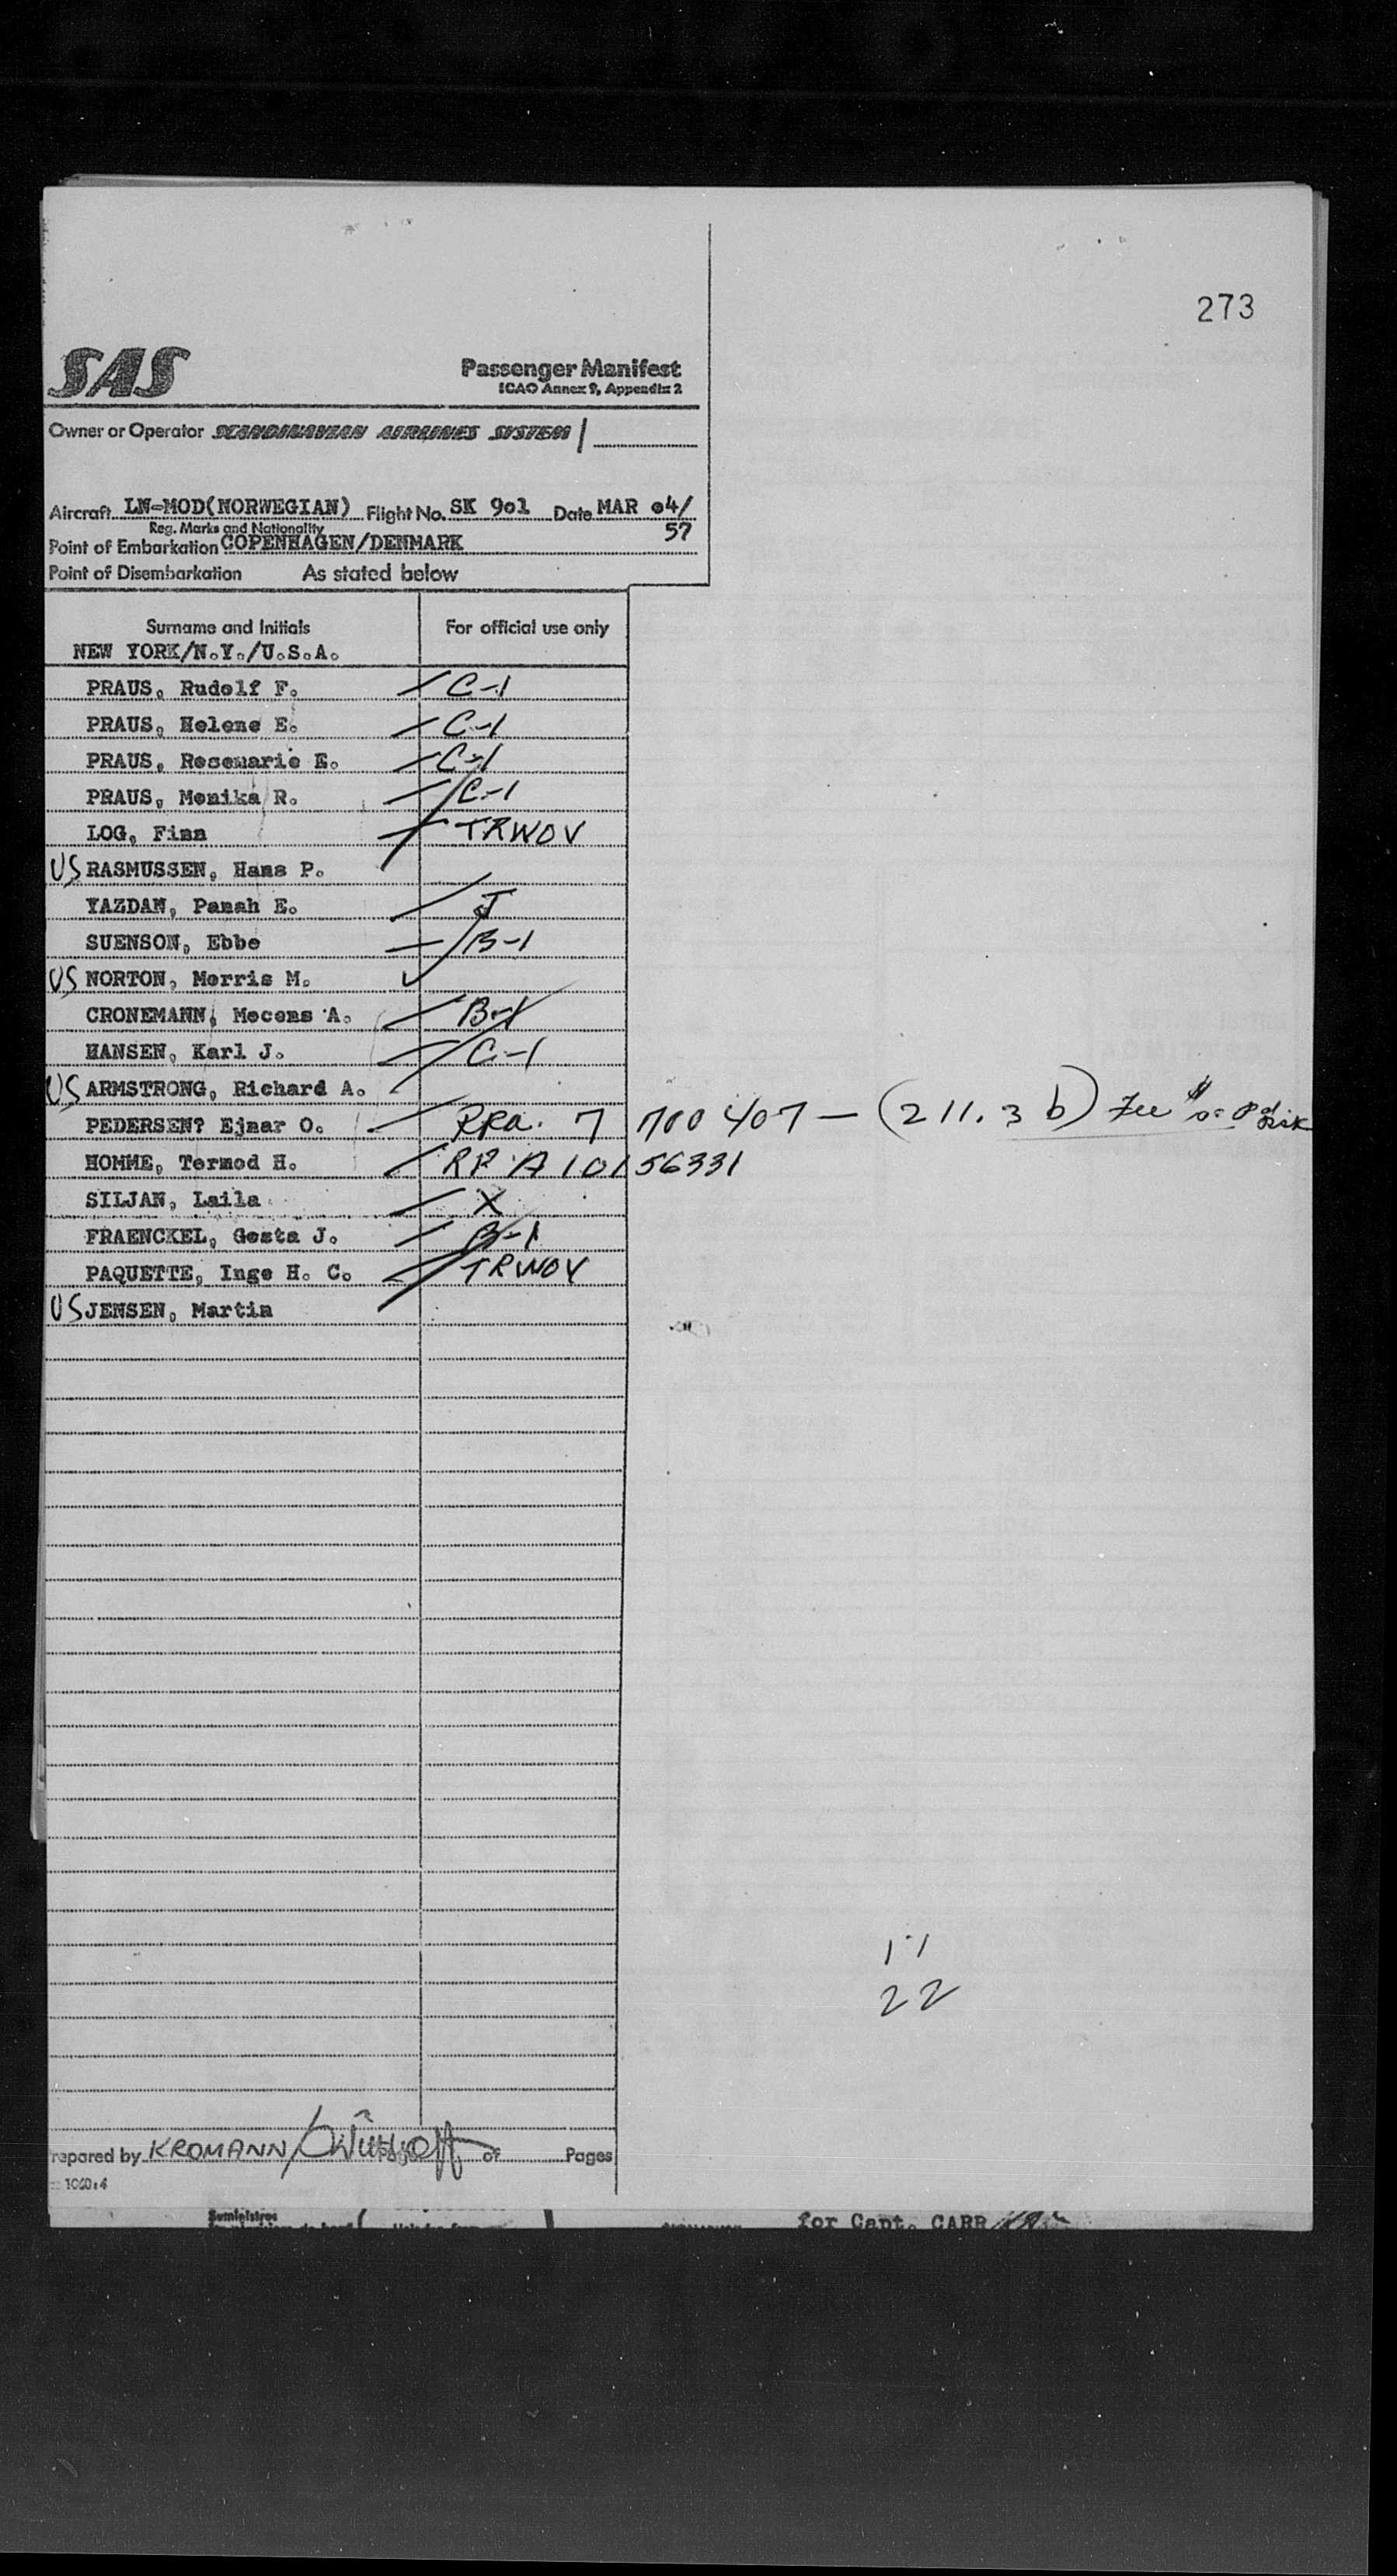 273
SAS
Passenger Manifest
ICAO Annex 9, Appendix 2
Owner or Operator SCANDINAVIAN AIRLINES SYSTEM
Aircraft LN-MOD(NORWEGIAN) Flight No. SK 901 Date MAR 04/
57
Reg. Marks and Nationality
Point of Embarkation COPENHAGEN/DENMARK
Point of Disembarkation As stated below
Surname and Initials For official use only
NEW YORK/N.Y./U.S.A.
PRAUS, Rudolf F. C-1
PRAUS, Helene E. C-1
PRAUS, Rosemarie E. C-1
PRAUS, Monika R. C-1
LOG, Finn TRWOV
US RASMUSSEN, Hans P.
YAZDAN, Panah E. J
SUENSON, Ebbe B-1
US NORTON, Morris M.
CRONEMANN, Mocens A. B-1
HANSEN, Karl J. C-1
US ARMSTRONG, Richard A.
PEDERSEN? Ejnar O. RRa. 7 700 407 — (211.3 b)
HOMME, Tormod H. RP A10156331
SILJAN, Laila X
FRAENCKEL, Gosta J. B-1
PAQUETTE, Inge H. C. TRWOV
US JENSEN, Martin
11
22
repared by KROMANN of Pages
1060:4
Suministros
for Capt. CARR